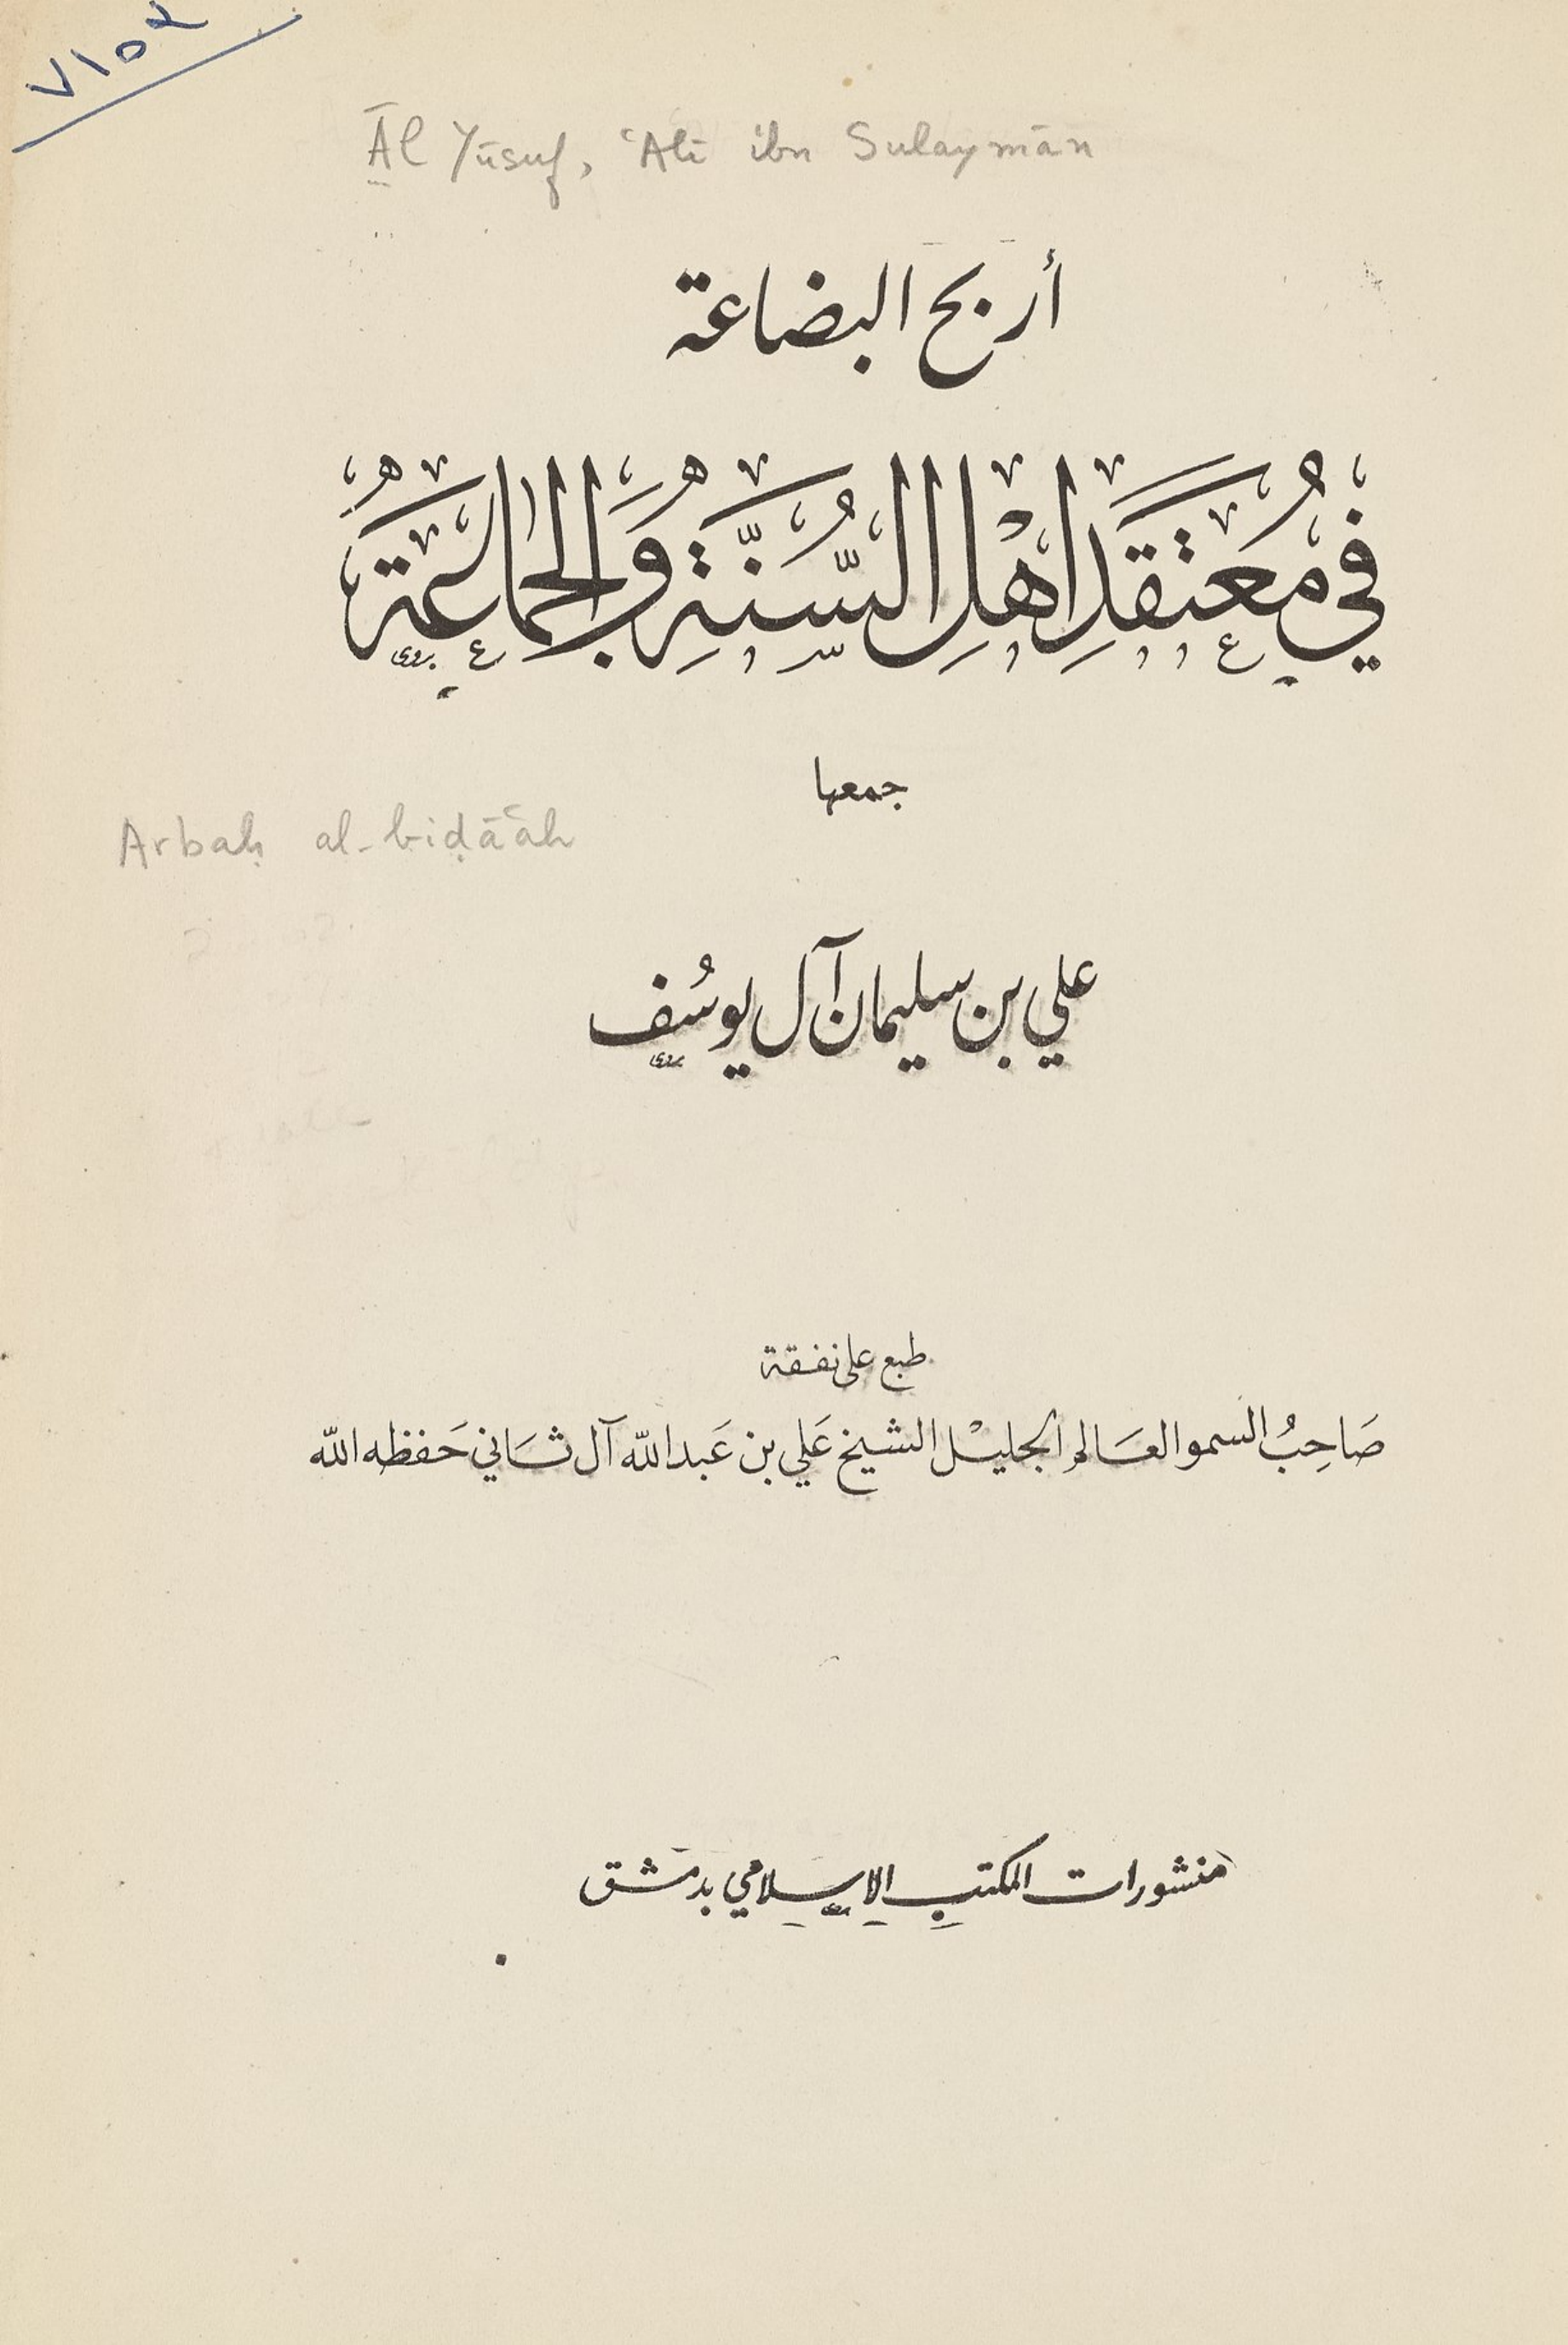 ٧١٥٢
Āl Yūsuf, ʿAlī ibn Sulaymān
أربح البضاعة
في مُعتَقَدِ اهْلِ السُّنَّةِ وَالجَمَاعَة
جمعها
Arbaḥ al-biḍāʿah
علي بن سليمان آل يوسُف
طبع على نفقة
صَاحِبُ السمو العَالم الجليْل الشيخ عَلي بن عَبد الله آل ثَاني حَفظه الله
منشورات المكتب الإسلامي بدمشق